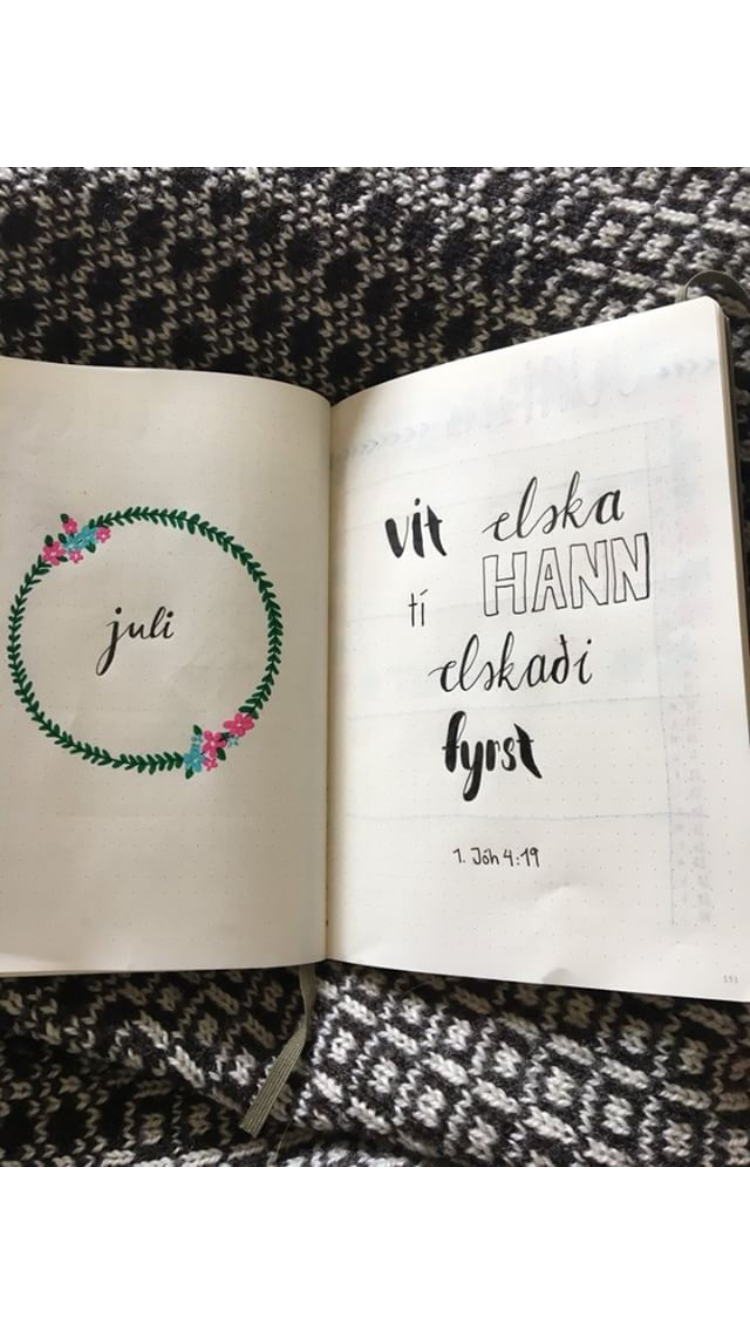 juli
vit elska
tí HANN
elskaði
fyrst
1. Jóh 4:19
151